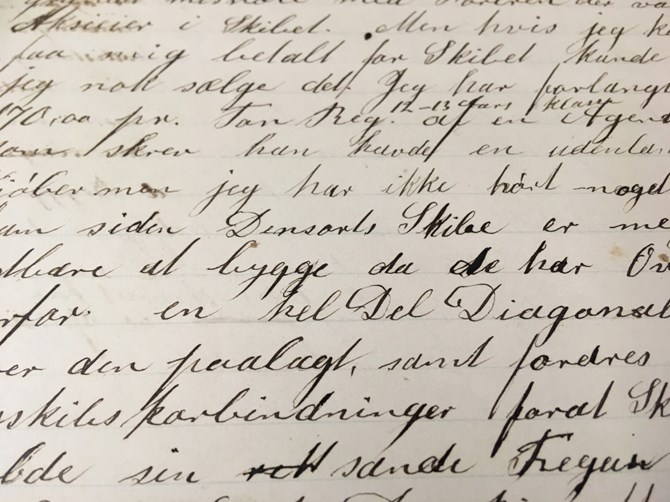 Aksieier i Skibet. Men hvis jeg
paa mig betalt for Skibet kunde
jeg nok sælge det. Jeg har forlangt
170,00 pr. Ton Reg. 12-13 aars klasse af en Agent
som skrev han havde en udenlan
kjøber men jeg har ikke hört noget
ham siden Densorts Skibe er me
stbare at bygge da de har
rfor en hel Del Diagonal
er den paalagt, samt fordres
skibsforbindninger forat Sk
öde sin sande